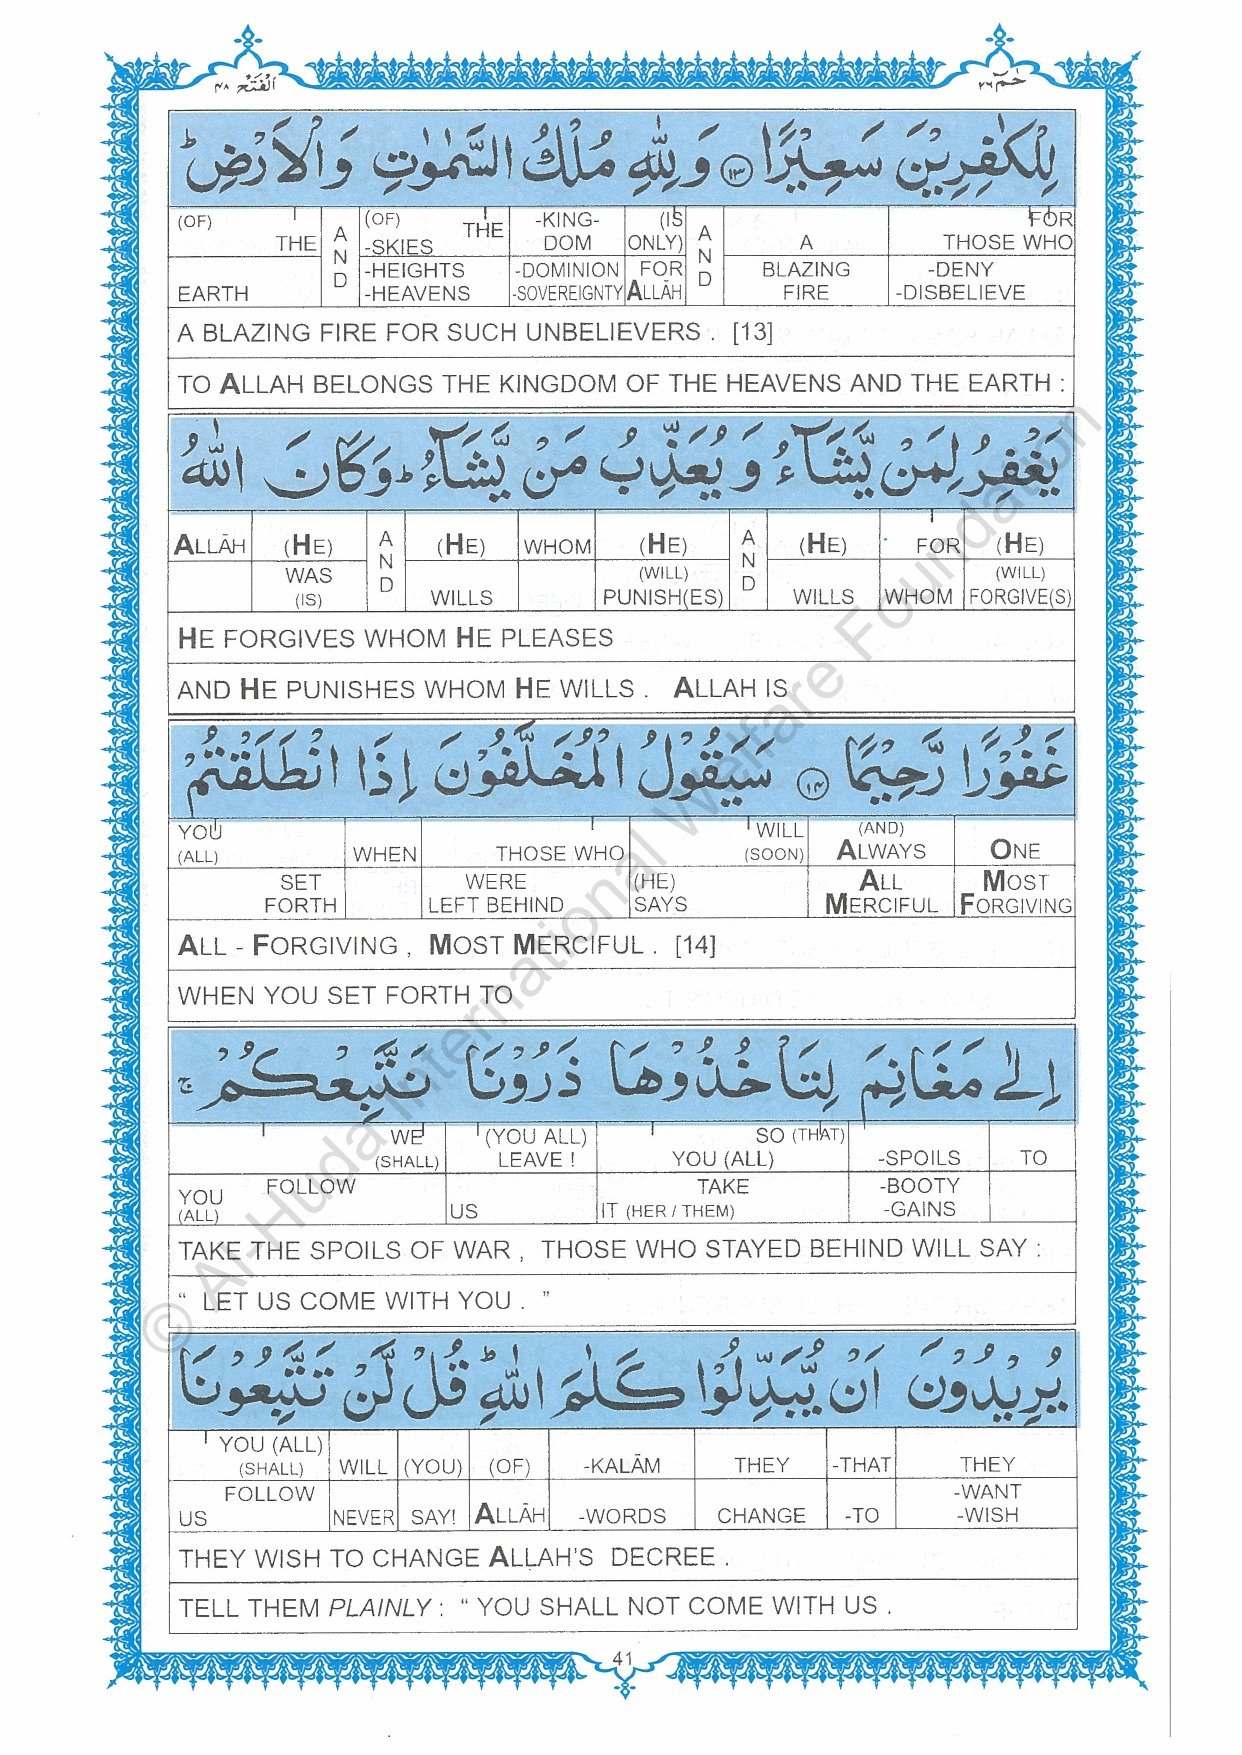 حٰمٓ ٢٦
اَلْفَتْح ٤٨
لِلْكٰفِرِيْنَ سَعِيْرًا ١٣ وَ لِلّٰهِ مُلْكُ السَّمٰوٰتِ وَ الْاَرْضِ ط
(OF) THE AND (OF) THE -KING- (IS AND A FOR
-SKIES DOM ONLY) THOSE WHO
-HEIGHTS -DOMINION FOR BLAZING -DENY
EARTH -HEAVENS -SOVEREIGNTY ALLĀH FIRE -DISBELIEVE
A BLAZING FIRE FOR SUCH UNBELIEVERS . [13]
TO ALLAH BELONGS THE KINGDOM OF THE HEAVENS AND THE EARTH :
يَغْفِرُ لِمَنْ يَّشَآءُ وَ يُعَذِّبُ مَنْ يَّشَآءُ ط وَ كَانَ اللّٰهُ
ALLĀH (HE) AND (HE) WHOM (HE) AND (HE) FOR (HE)
WAS (WILL) (WILL)
(IS) WILLS PUNISH(ES) WILLS WHOM FORGIVE(S)
HE FORGIVES WHOM HE PLEASES
AND HE PUNISHES WHOM HE WILLS . ALLAH IS
غَفُوْرًا رَّحِيْمًا ١٤ سَيَقُوْلُ الْمُخَلَّفُوْنَ اِذَا انْطَلَقْتُمْ
YOU WILL (AND)
(ALL) WHEN THOSE WHO (SOON) ALWAYS ONE
SET WERE (HE) ALL MOST
FORTH LEFT BEHIND SAYS MERCIFUL FORGIVING
ALL - FORGIVING , MOST MERCIFUL . [14]
WHEN YOU SET FORTH TO
اِلٰى مَغَانِمَ لِتَاْخُذُوْهَا ذَرُوْنَا نَتَّبِعْكُمْ ج
WE (YOU ALL) SO (THAT)
(SHALL) LEAVE ! YOU (ALL) -SPOILS TO
YOU FOLLOW TAKE -BOOTY
(ALL) US IT (HER / THEM) -GAINS
TAKE THE SPOILS OF WAR , THOSE WHO STAYED BEHIND WILL SAY :
“ LET US COME WITH YOU . ”
يُرِيْدُوْنَ اَنْ يُّبَدِّلُوْا كَلٰمَ اللّٰهِ ط قُلْ لَّنْ تَتَّبِعُوْنَا
YOU (ALL)
(SHALL) WILL (YOU) (OF) -KALĀM THEY -THAT THEY
FOLLOW -WANT
US NEVER SAY! ALLĀH -WORDS CHANGE -TO -WISH
THEY WISH TO CHANGE ALLAH’S DECREE .
TELL THEM PLAINLY : “ YOU SHALL NOT COME WITH US .
41
© Al-Huda International Welfare Foundation